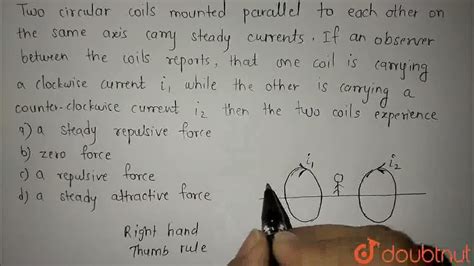 Two circular coils mounted parallel to each other on
the same axis carry steady currents. If an observer
between the coils reports, that one coil is carrying
a clockwise current i₁ while the other is carrying a
counter-clockwise current i₂ then the two coils experience
a) a steady repulsive force
b) zero force
c) a repulsive force
d) a steady attractive force
i₁
i₂
Right hand
Thumb rule
doubtnut